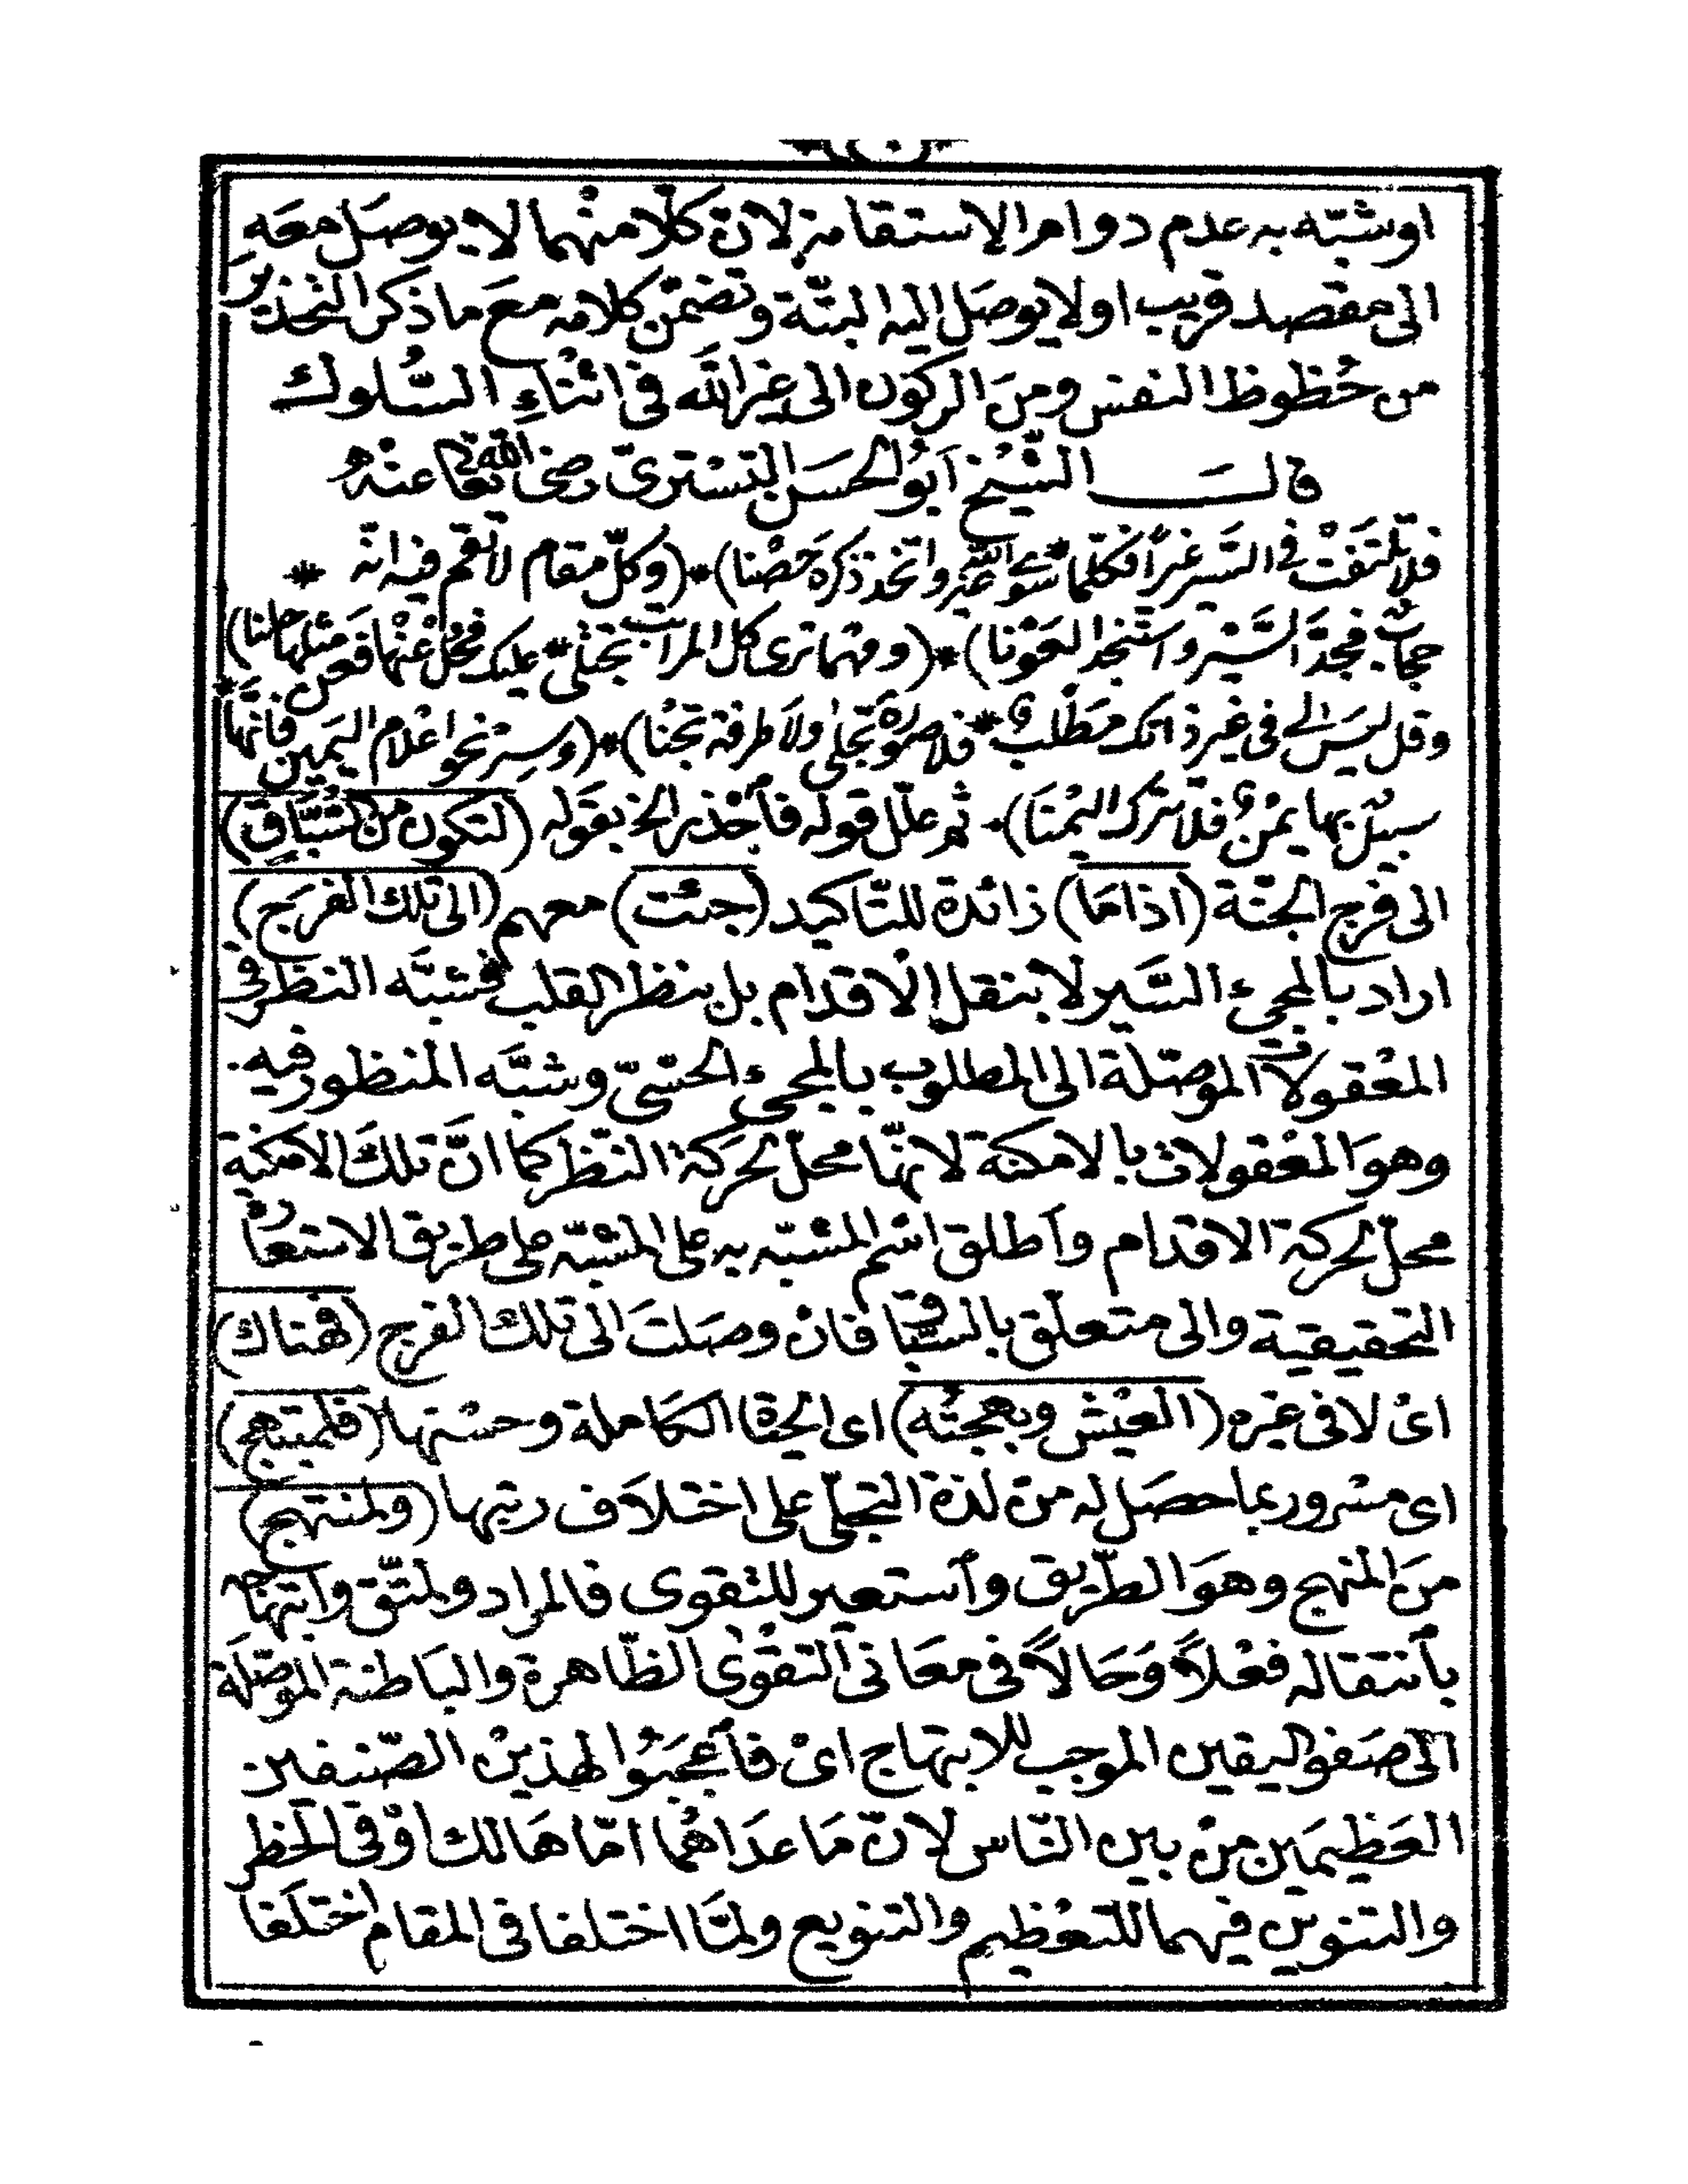 اوشبّه به عدم دوام الاستقامة لانّ كلّا منهما لا يوصَل معَه
الى مقصد قريب اولا يوصَل اليه البتّة وتضمّن كلامه معَ ما ذكر التحذير
من حُظوظ النفس ومنَ الركون الى غير الله فى اثناءِ السُّلوك
قالَ الشّيْخ اَبُو الحسَن التسْترىّ رضى الله تعا عنْهُ
فلا تلتفَتْ فى السَير غيرًا فكلّما * سوى الله غير واتخذ ذكره حَصْنا) * (وكلّ مقام لا تقم فيه انّه *
حجابٌ فجدَّ السَّيْر واستنجد العَوْنا) * (ومهما ترى كل المراتب تجتلىّ * عليك فحُلْ عنْها فعن مثلها حلنا)
وقل ليسَ لى فى غير ذاتك مَطْلبٌ * فلا صُورة تجلى ولا طرفة تجْنا) * (وسِرْ نحو اعْلام اليَمين فانّهَا *
سبيلٌ بها يمْنٌ فلا تترك اليُمْنَا) ثم علّل قوله فاَحْذر الخ بقَوله (لتكون منَ السُّبَّاقِ)
الى فرج الجنّة (اذا مَا) زائدة للتّاكيد (جئت) معهم (الى تلك الفرَج)
اراد بالمجىء السَّير لا بنقل الْاقدَام بل بنظر القلب فشبَّه النظرَ فى
المعْقولات الموصّلة الى المطلوب بالمجىء الحسّىّ وشبَّه المنظور فيه
وهوَ المعْقولات بالامكنة لانّها محلّ لحرَكة النّظر كما انَّ تلكَ الامكنة
محلّ لحركة الاقدام واَطلق اسْم المشبّه به على المشبّه على طريق الاستعارة
التحقيقية والى متعلّق بالسبّاق فان وصَلتَ الى تلك الفرج (فهناك)
اىْ لا فى غيره (العَيْش وبهجتُه) اى الحيٰوة الكاملة وحسْنها (فلمبتهج)
اى مسْرور بما حصَل له من لذة التجلّى على اختلاَف رتبها (ولمنتهج)
منَ المنهج وهوَ الطّريق واَستعير للتقوى فالمراد ولمتّق وانتهاجه
باَنتقاله فعْلاً وَحَالاً فى معَانى التقوٰى الظّاهرة والبَاطنة الموصّلَة
الى صَفو اليقين الموجب للابتهاج اىْ فاَعجَبُوا لهذيْن الصّنيفين
العَظيمَين منْ بين النّاس لانّ مَا عدَاهُما امّا هَالك اوْ فى الخطر
والتنوين فيهما للتعْظيم والتنويع ولمّا اختلفا فى المقام اختلَفا